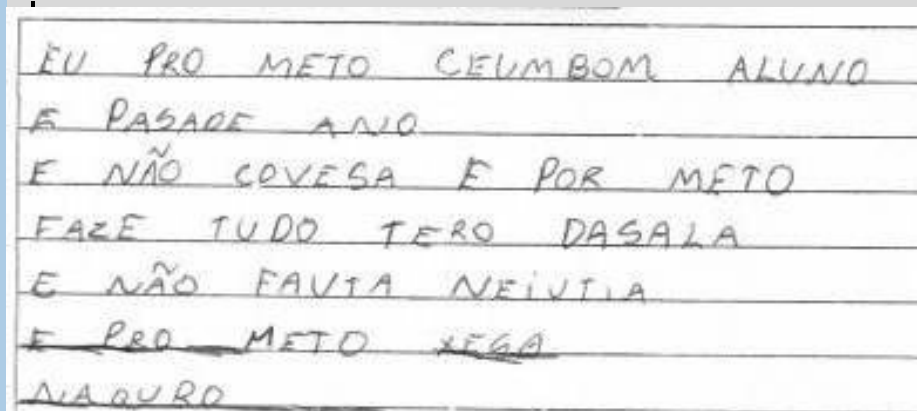 EU PRO METO CEUMBOM ALUNO
E PASADE ANO
E NÃO COVESA E POR METO
FAZE TUDO TERO DASALA
E NÃO FAUTA NEIUTIA
E PRO METO XEGA
NAQURO